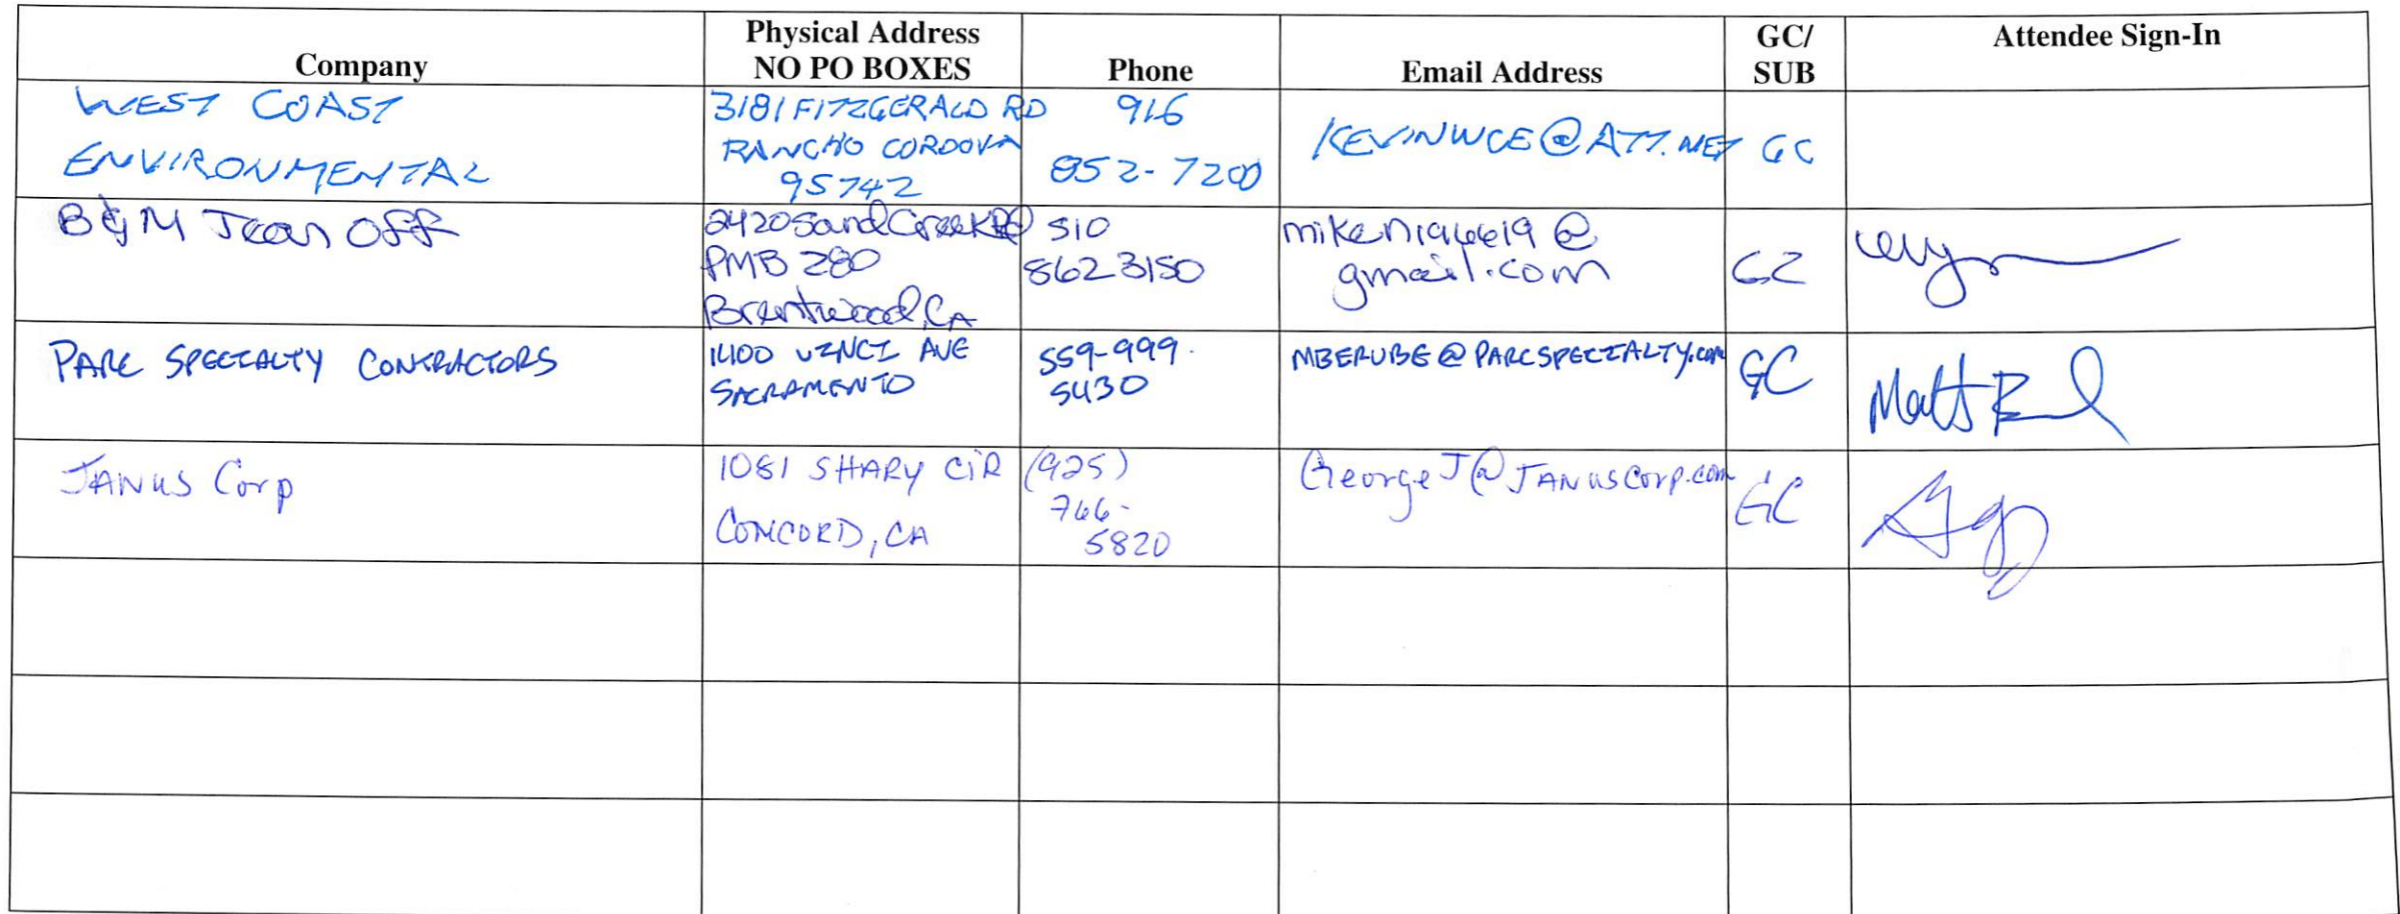 Company
Physical Address
NO PO BOXES
Phone
Email Address
GC/
SUB
Attendee Sign-In
WEST COAST
ENVIRONMENTAL
3181 FITZGERALD RD
RANCHO CORDOVA
95742
916
852-7200
KEVINWCE@ATT.NET
GC
B&M Tear Off
2420 Sand Creek Rd
PMB 280
Brentwood, CA
510
862 3150
gmail.com
PARC SPECIALTY CONTRACTORS
1400 VINCI AVE
SACRAMENTO
559-999-
5430
MBERUBE@PARCSPECIALTY.com
GC
Matt
JANUS Corp
1081 SHARY CiR
CONCORD, CA
(925)
766-
5820
GeorgeJ@JANUSCorp.com
GC